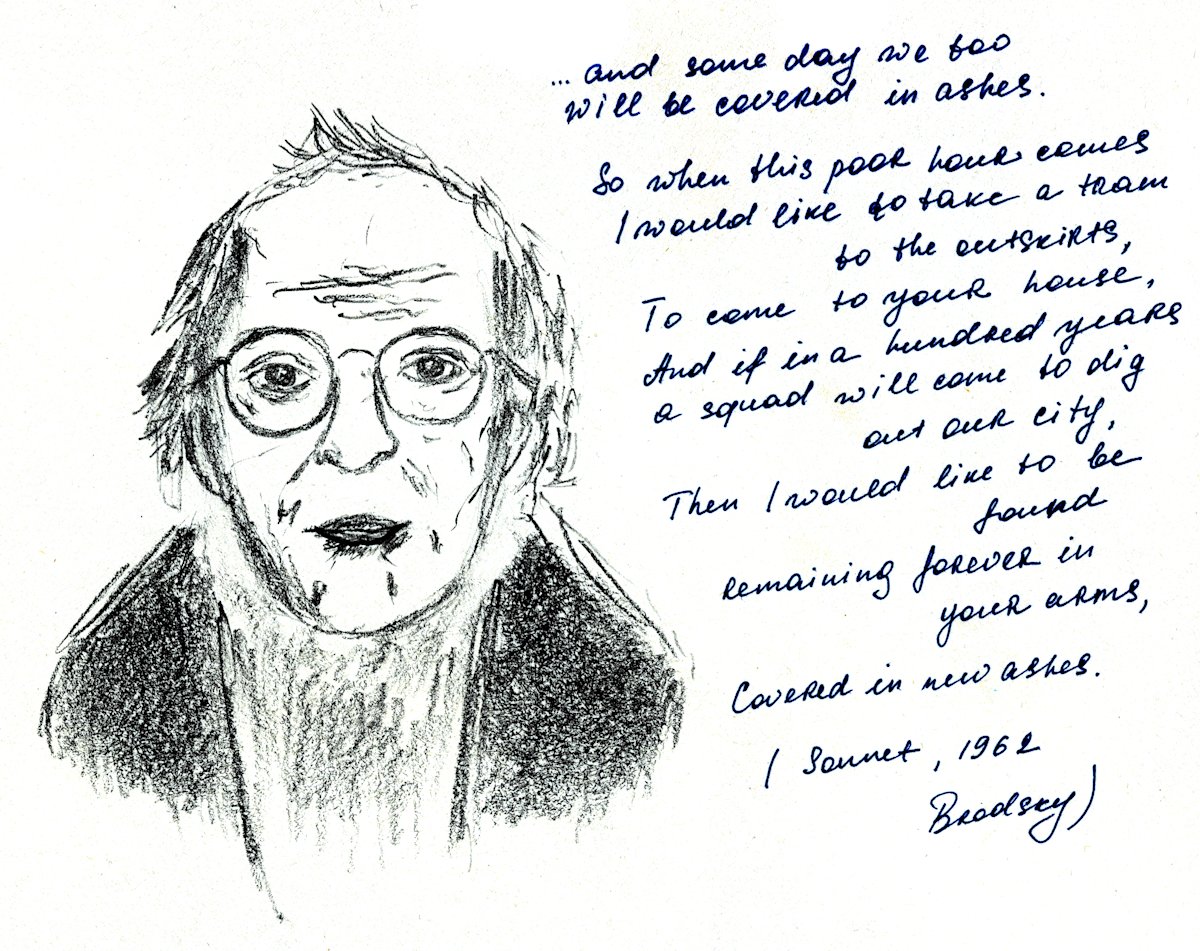 ... and some day we too
will be covered in ashes.
So when this poor hour comes
I would like to take a tram
to the outskirts,
To come to your house,
And if in a hundred years
a squad will come to dig
out our city,
Then I would like to be
found
remaining forever in
your arms,
Covered in new ashes.
( Sonnet, 1962
Brodsky)